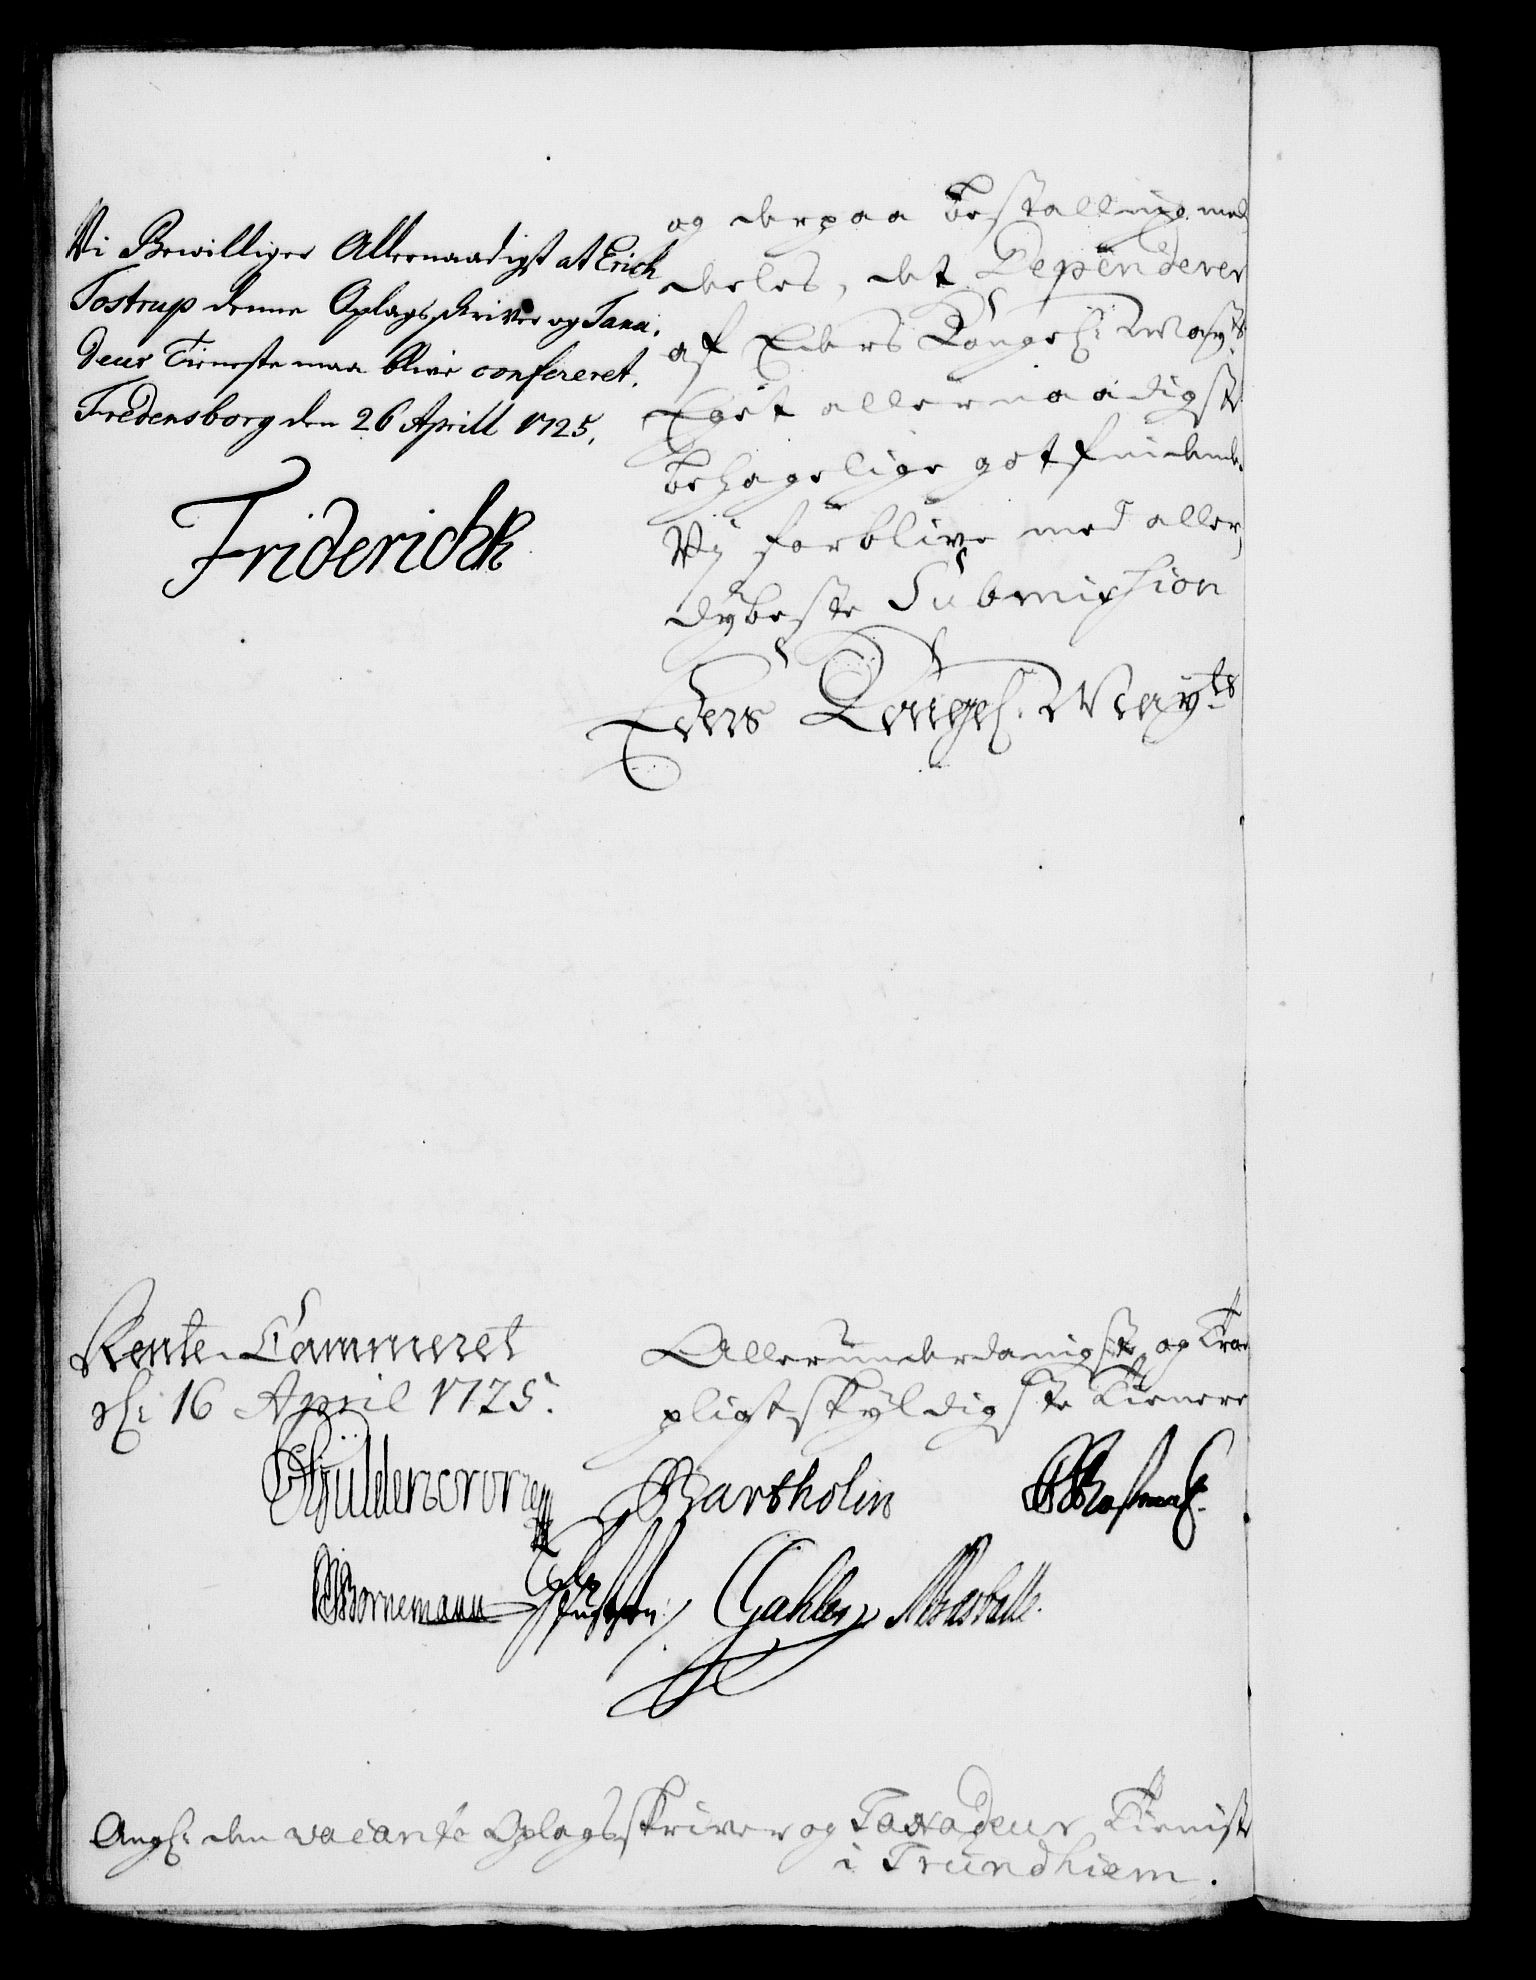 Vi Bewilliger Allernaadigst at Erich
Tostrup denne Oplagsskriver og Taxa-
deur Tieneste maa blive confereret.
Fredensborg den 26 Aprill 1725.
Friderich R
og derpaa Bestalling med
deeles, det Dependerer
af Eders Kongel: Mayts
Eget allernaadigst
behagelige gotfindende.
Vy forblive med aller,
dybeste Submission
Eders Kongel. Mayts
Rente Cammeret
d: 16 April 1725.
Allerunderdanigste og Troe
pligtskyldigste Tienere
Güldencrone
Bartholin
Bornemann
Gahler
Angl: den vacante Oplagsskriver og Taxadeur Tieniste
i Trundhiem.